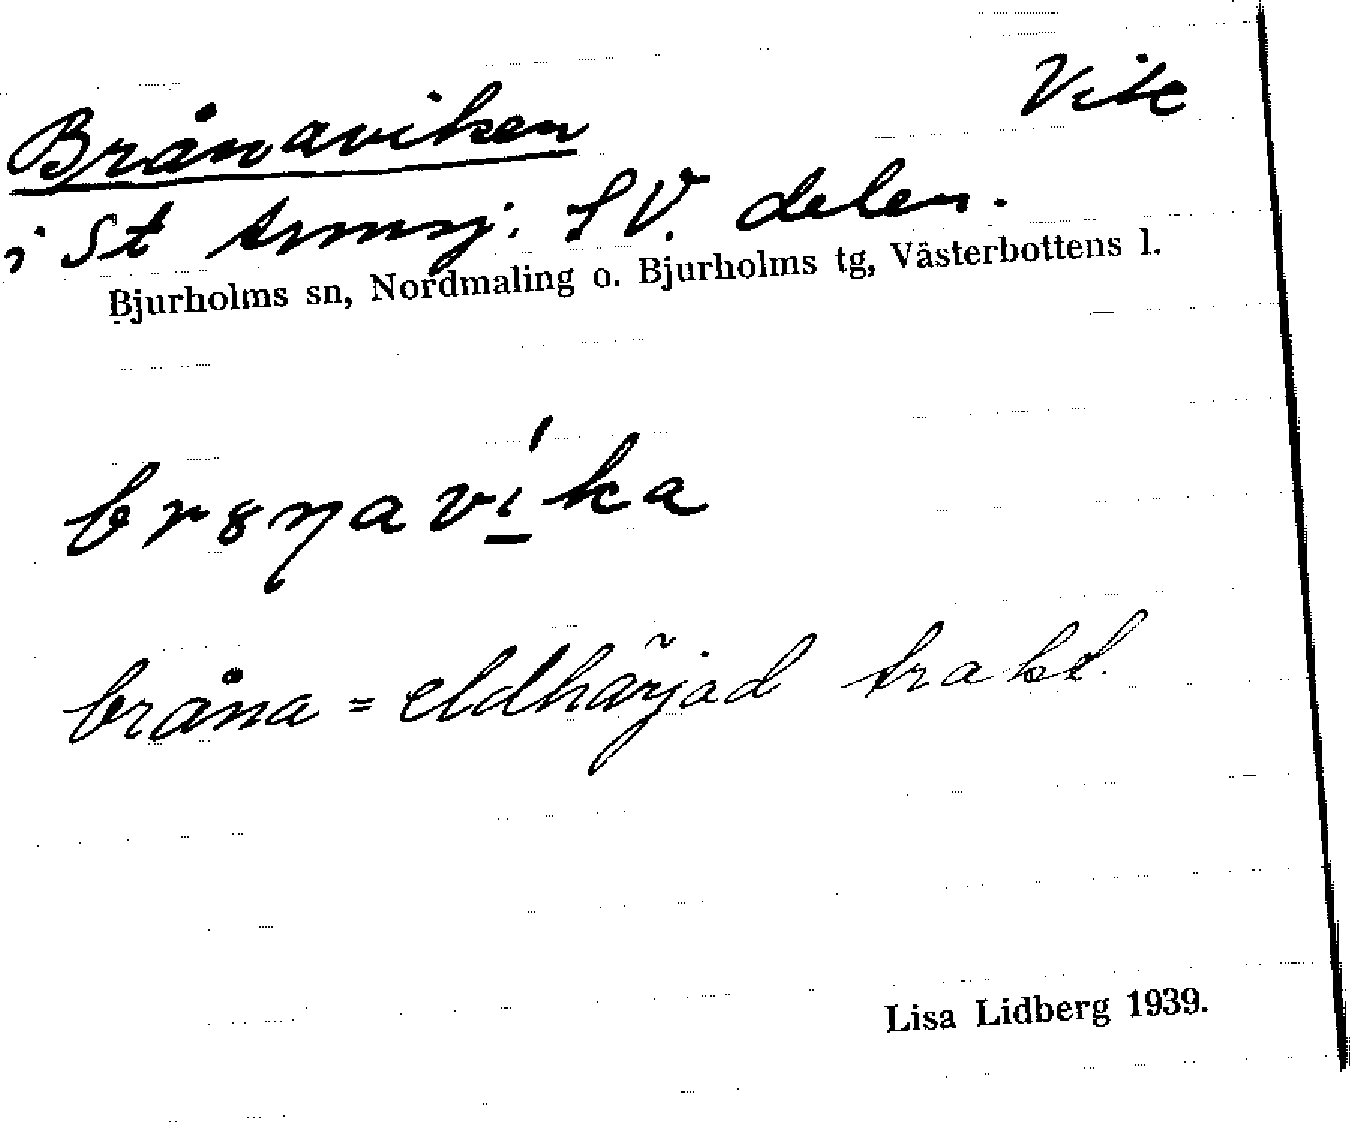 Brånaviken Vik
i St Armsj. SV. delen.
Bjurholms sn, Nordmaling o. Bjurholms tg, Västerbottens l.
br8ŋaví̱ka
bråna = eldhärjad trakt.
Lisa Lidberg 1939.